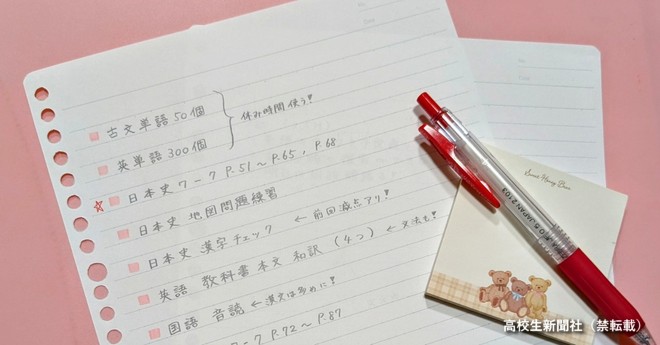 古文単語50個
英単語300個
休み時間使う!
☆日本史ワーク P.51〜P.65, P.68
日本史 地図問題練習
日本史 漢字チェック ← 前回減点アリ!
英語 教科書本文 和訳 (4つ) ← 文法も!
国語 音読 ← 漢文は多めに!
ーク P.72〜P.87
No.
Date
Sweet Honey Bear
高校生新聞社(禁転載)